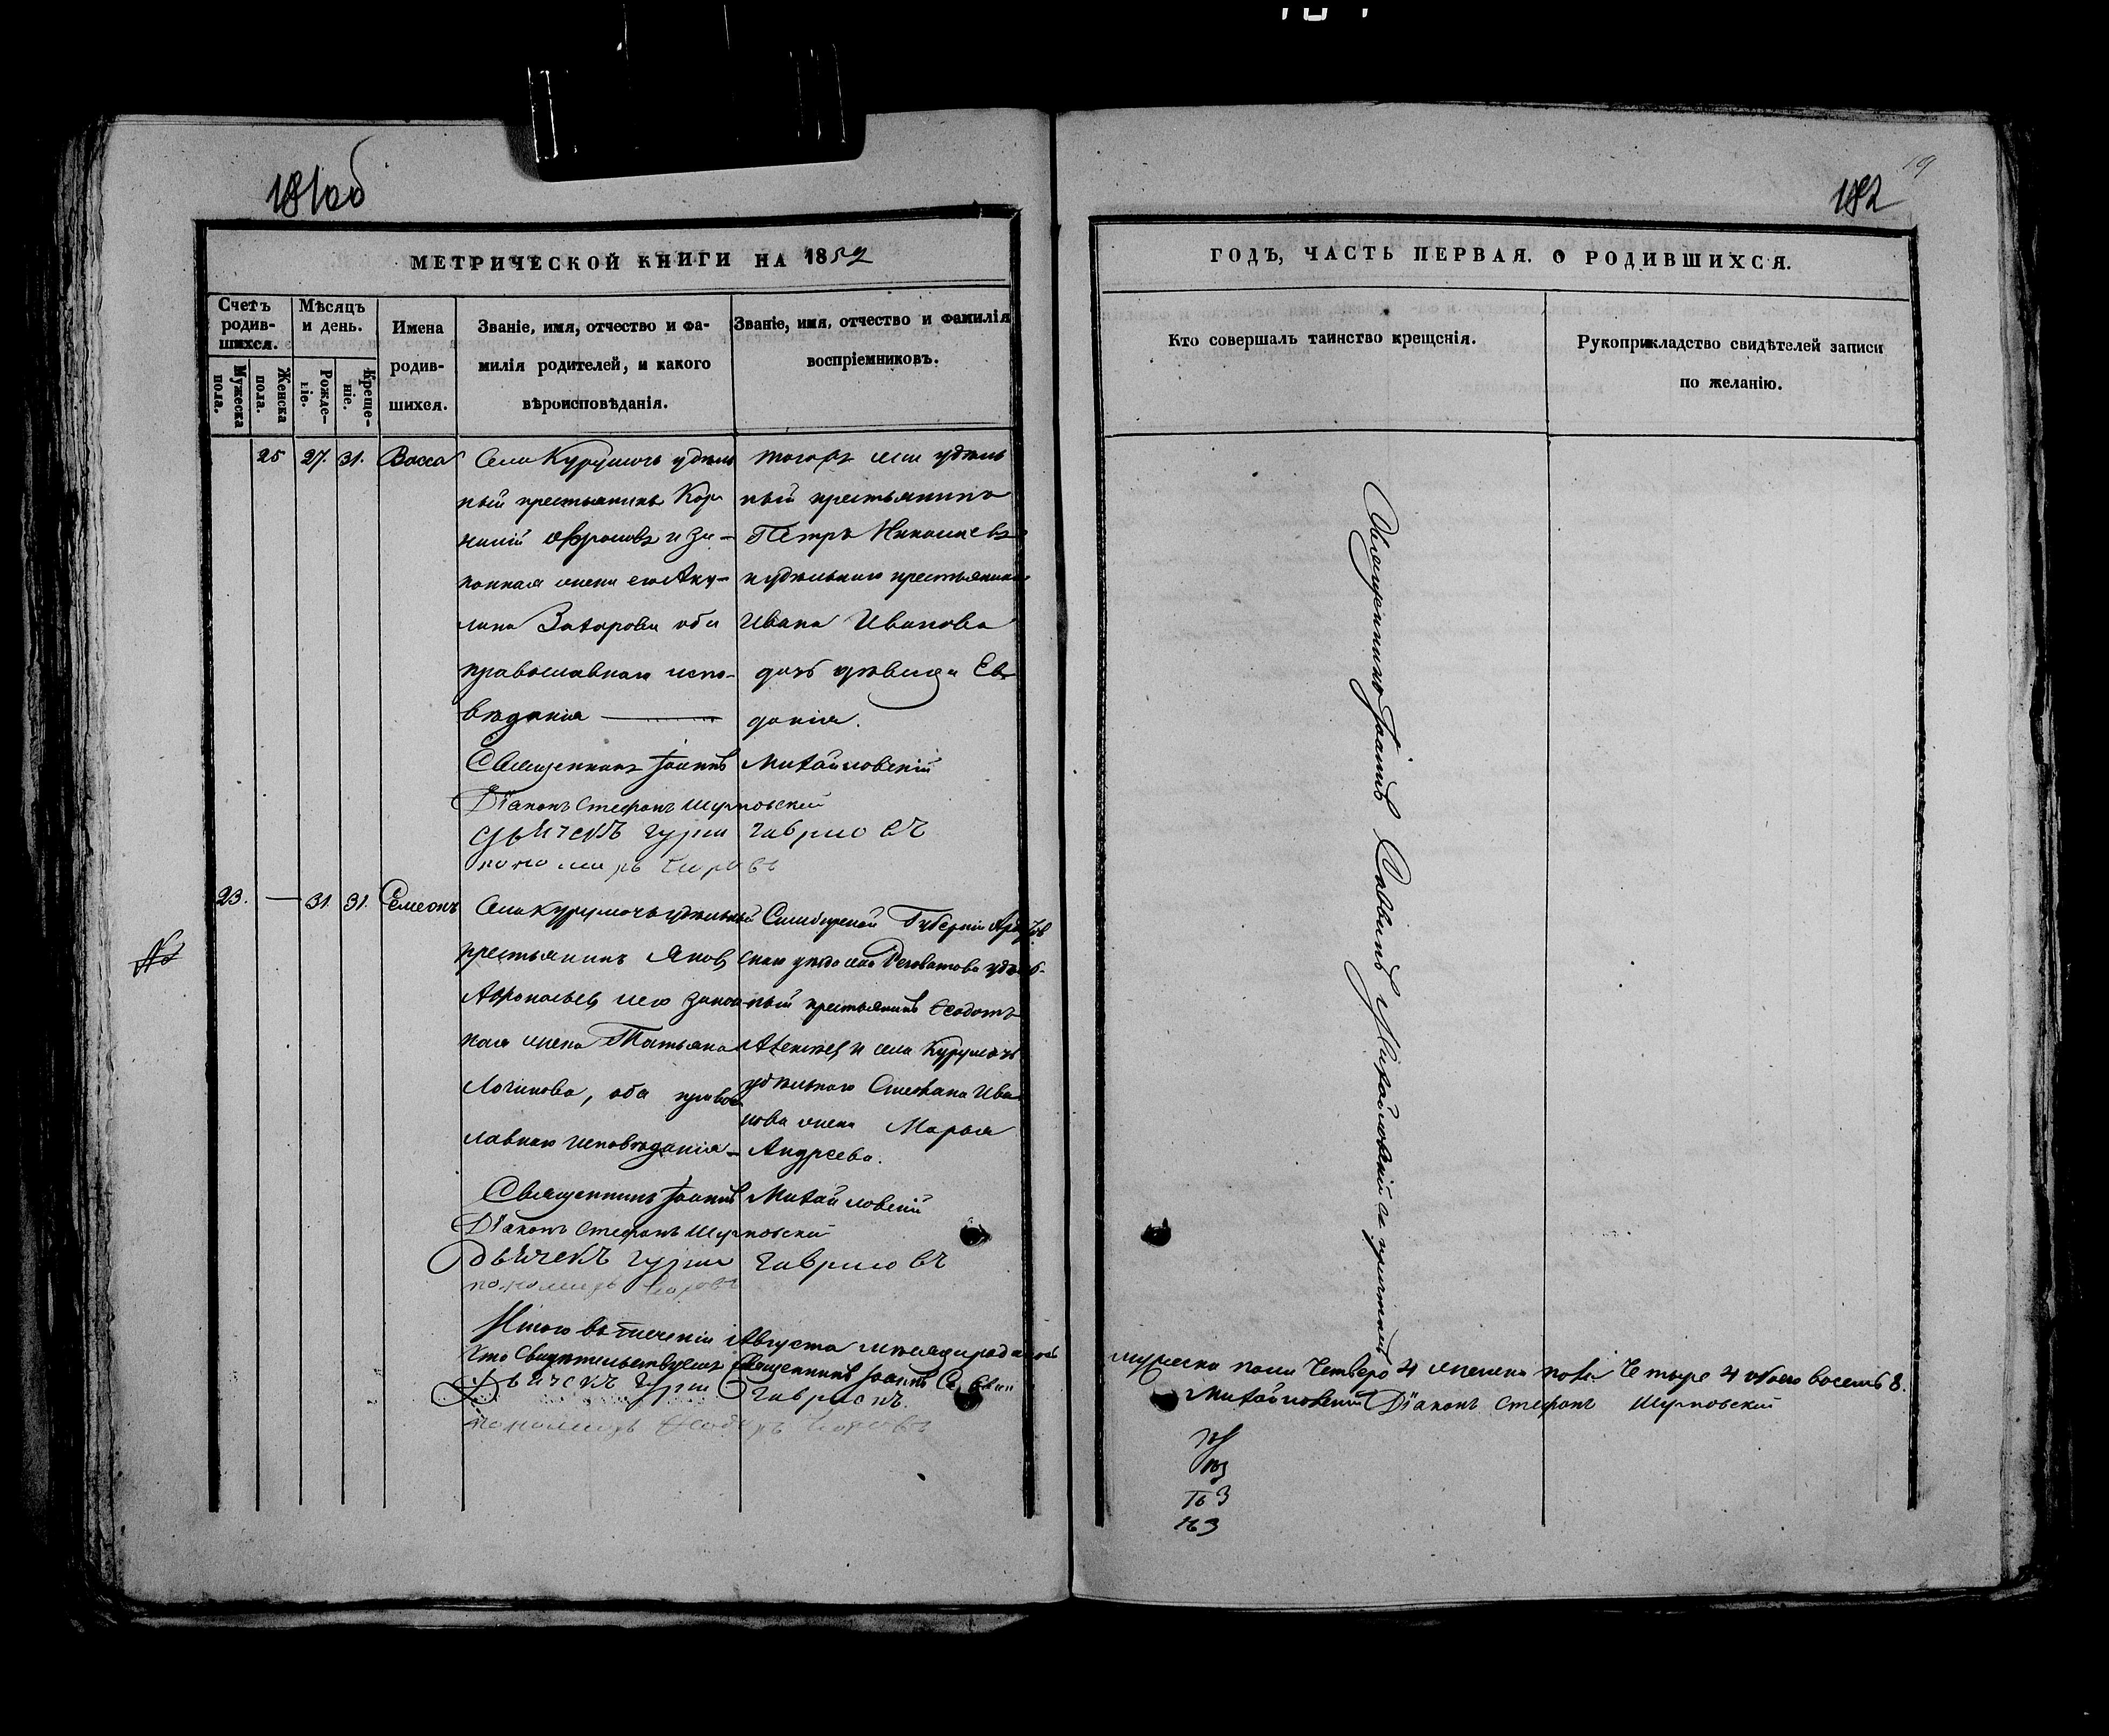 181об
МЕТРИЧЕСКОЙ КНИГИ НА 1852
Счетъ родив-шихся.
Мужеска пола.
Женска пола.
Мѣсяцъ и день.
Рожде-ніе.
Креще-ніе.
Имена родив-шихся.
Званіе, имя, отчество и фа-
милія родителей, и какого
вѣроисповѣданія.
Званіе, имя, отчество и фамилія
воспріемниковъ.
25 27. 31. Васса
Села Курумочь удѣль
ный крестьянинъ Кор
нилій и за-
конная жена его Аку-
лина Захарова оба
православнаго испо-
вѣданія
тогожъ села удѣль
ный крестьянинъ
Петръ Николаевъ
и удѣльнаго крестьянина
Ивана Иванова
дочь дѣвица Ев
данія.
Священникъ Іоаннъ Михайловскій
Діаконъ Стефанъ
дьячекъ Гурій Гавриловъ
пономарь
23. — 31. 31. Симеонъ
Села Курумочь удѣльный
крестьянинъ Яковъ
Афонасьевъ и его закон
ная жена Татьяна
Логинова, оба правос
лавнаго исповѣданія
Симбирской Губерніи
скаго уѣзда села удѣль-
ный крестьянинъ Ѳеодотъ
и села Курумочь
удѣльнаго Степана Ива
нова жена Марья
Андреева.
Священникъ Іоаннъ Михайловскій
Діаконъ Стефанъ
Дьячекъ Гурій Гавриловъ
пономарь
Итого въ теченіи Августа мѣсяца родилось
Что свидѣтельствуемъ Священникъ Іоаннъ Саввинъ
Дьячекъ Гурій Гавриловъ
пономарь
19
182
ГОДЪ, ЧАСТЬ ПЕРВАЯ. О РОДИВШИХСЯ.
Кто совершалъ таинство крещенія.
Рукоприкладство свидѣтелей записи
по желанію.
Священникъ Іоаннъ Саввинъ Михайловскій съ причтомъ
мужеска пола Четверо 4 женска пола Четыре 4 обоего восемь 8.
Михайловскій Діаконъ Стефанъ